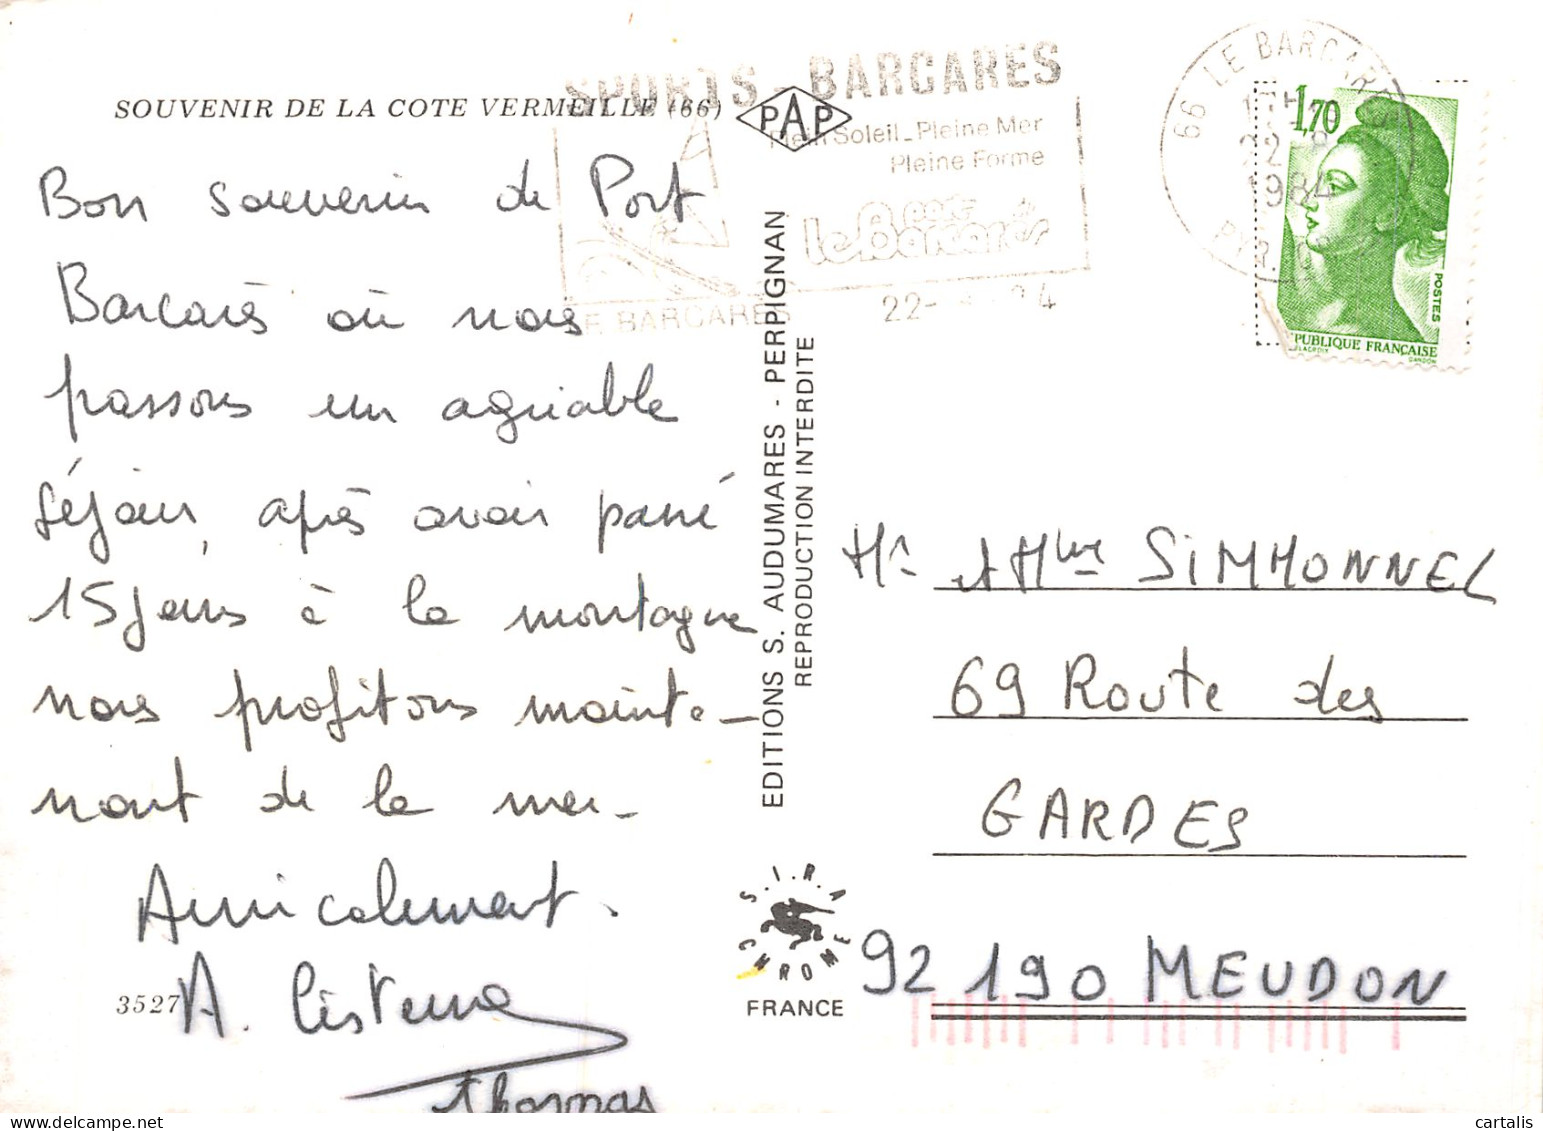 SOUVENIR DE LA COTE VERMEILLE (66)
Bon souvenir de Port
Barcarès où nous
passons un agréable
séjour, après avoir passé
15 jours à la montagne
nous profitons mainte-
nant de la mer.
Amicalement.
A.
Thomas
3527
SPORTS - BARCARES
Plein Soleil _ Pleine Mer
Pleine Forme
port
le Barcarès
LE BARCARES
PAP
EDITIONS S. AUDUMARES - PERPIGNAN
REPRODUCTION INTERDITE
S.I.R.A
CHROME
FRANCE
66 LE BARCARES
22-8
1984
1,70
POSTES
REPUBLIQUE FRANÇAISE
DELACROIX
GANDON
Mr et Mme SIMMONNEL
69 Route des
GARDES
92190 MEUDON
cartalis